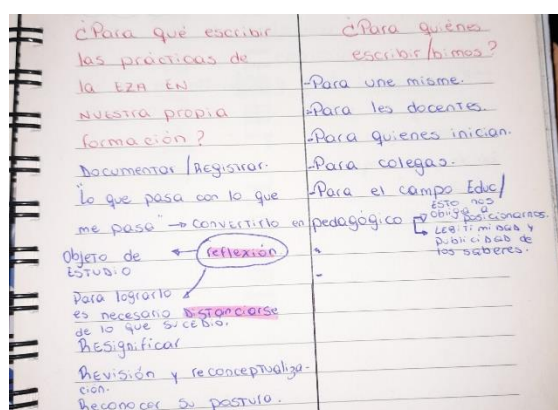 ¿Para qué escribir
las prácticas de
la EZA EN
NUESTRA propia
formación?
Documentar/Registrar.
"Lo que pasa con lo que
me pasa" → convertirlo en
Objeto de
ESTUDIO
reflexión
Para lograrlo
es necesario DISTANCIARSE
de lo que SUCEDIÓ.
RESignificar
REVisión y reconceptualiza-
ción.
Reconocer su postura.
¿Para quiénes
escribir/bimos?
-Para une misme.
-Para les docentes.
-Para quienes inician.
-Para colegas.
-Para el campo Educ/
pedagógico
ESTO nos
obliga a
posicionarnos.
LEGITIMIDAD y
PUBLICIDAD de
los saberes.